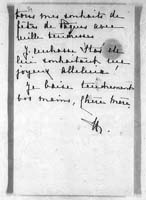 tous mes souhaits de
fêtes de Pâques avec
mille tendresses
J'embrasse
lui souhaitant un
joyeux alleluia
Je baise tendrement
vos mains, chère